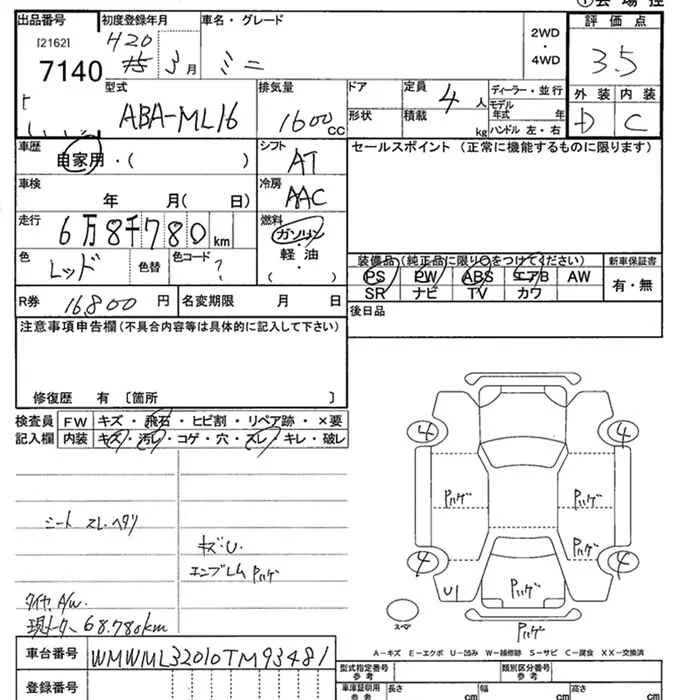 ①会場控
出品番号 初度登録年月 車名・グレード
[2162]
7140
H20
3月 ミニ
2WD
・
4WD
評価点
3.5
外装 内装
D C
型式
ABA-ML16
排気量
1600cc
ドア
形状
定員
4人
積載
kg
ディーラー・並行
モデル
年式 年
ハンドル 左・右
車歴
自家用・( )
シフト
AT
車検
年 月( 日)
冷房
AAC
走行
6万8千780km
燃料
ガソリン
・
軽油
( )
色
レッド
色替
色コード
?
セールスポイント (正常に機能するものに限ります)
装備品(純正品に限り○をつけてください)
PS PW ABS エアB AW
SR ナビ TV カワ
新車保証書
有・無
R券 16,800円 名変期限 月 日
後日品
注意事項申告欄(不具合内容等は具体的に記入して下さい)
修復歴 有 〔箇所 〕
検査員
記入欄
FW キズ・飛石・ヒビ割・リペア跡・×要
内装 キズ・汚レ・コゲ・穴・スレ・キレ・破レ
シート スレ・ヘタリ
キズ・U.
エンブレム Pハゲ
タイヤ A/W.
現メーター 68.780km
4 4
Pハゲ Pハゲ
Pハゲ
4 4
U1
Pハゲ
スペア
Pハゲ
A－キズ E－エクボ U－凹み W－補修跡 S－サビ C－腐食 XX－交換済
車台番号 WMWML32010TM93481
登録番号
型式指定番号
参考
類別区分番号
参考
車庫証明用
参考
長さ cm 幅 cm 高さ cm